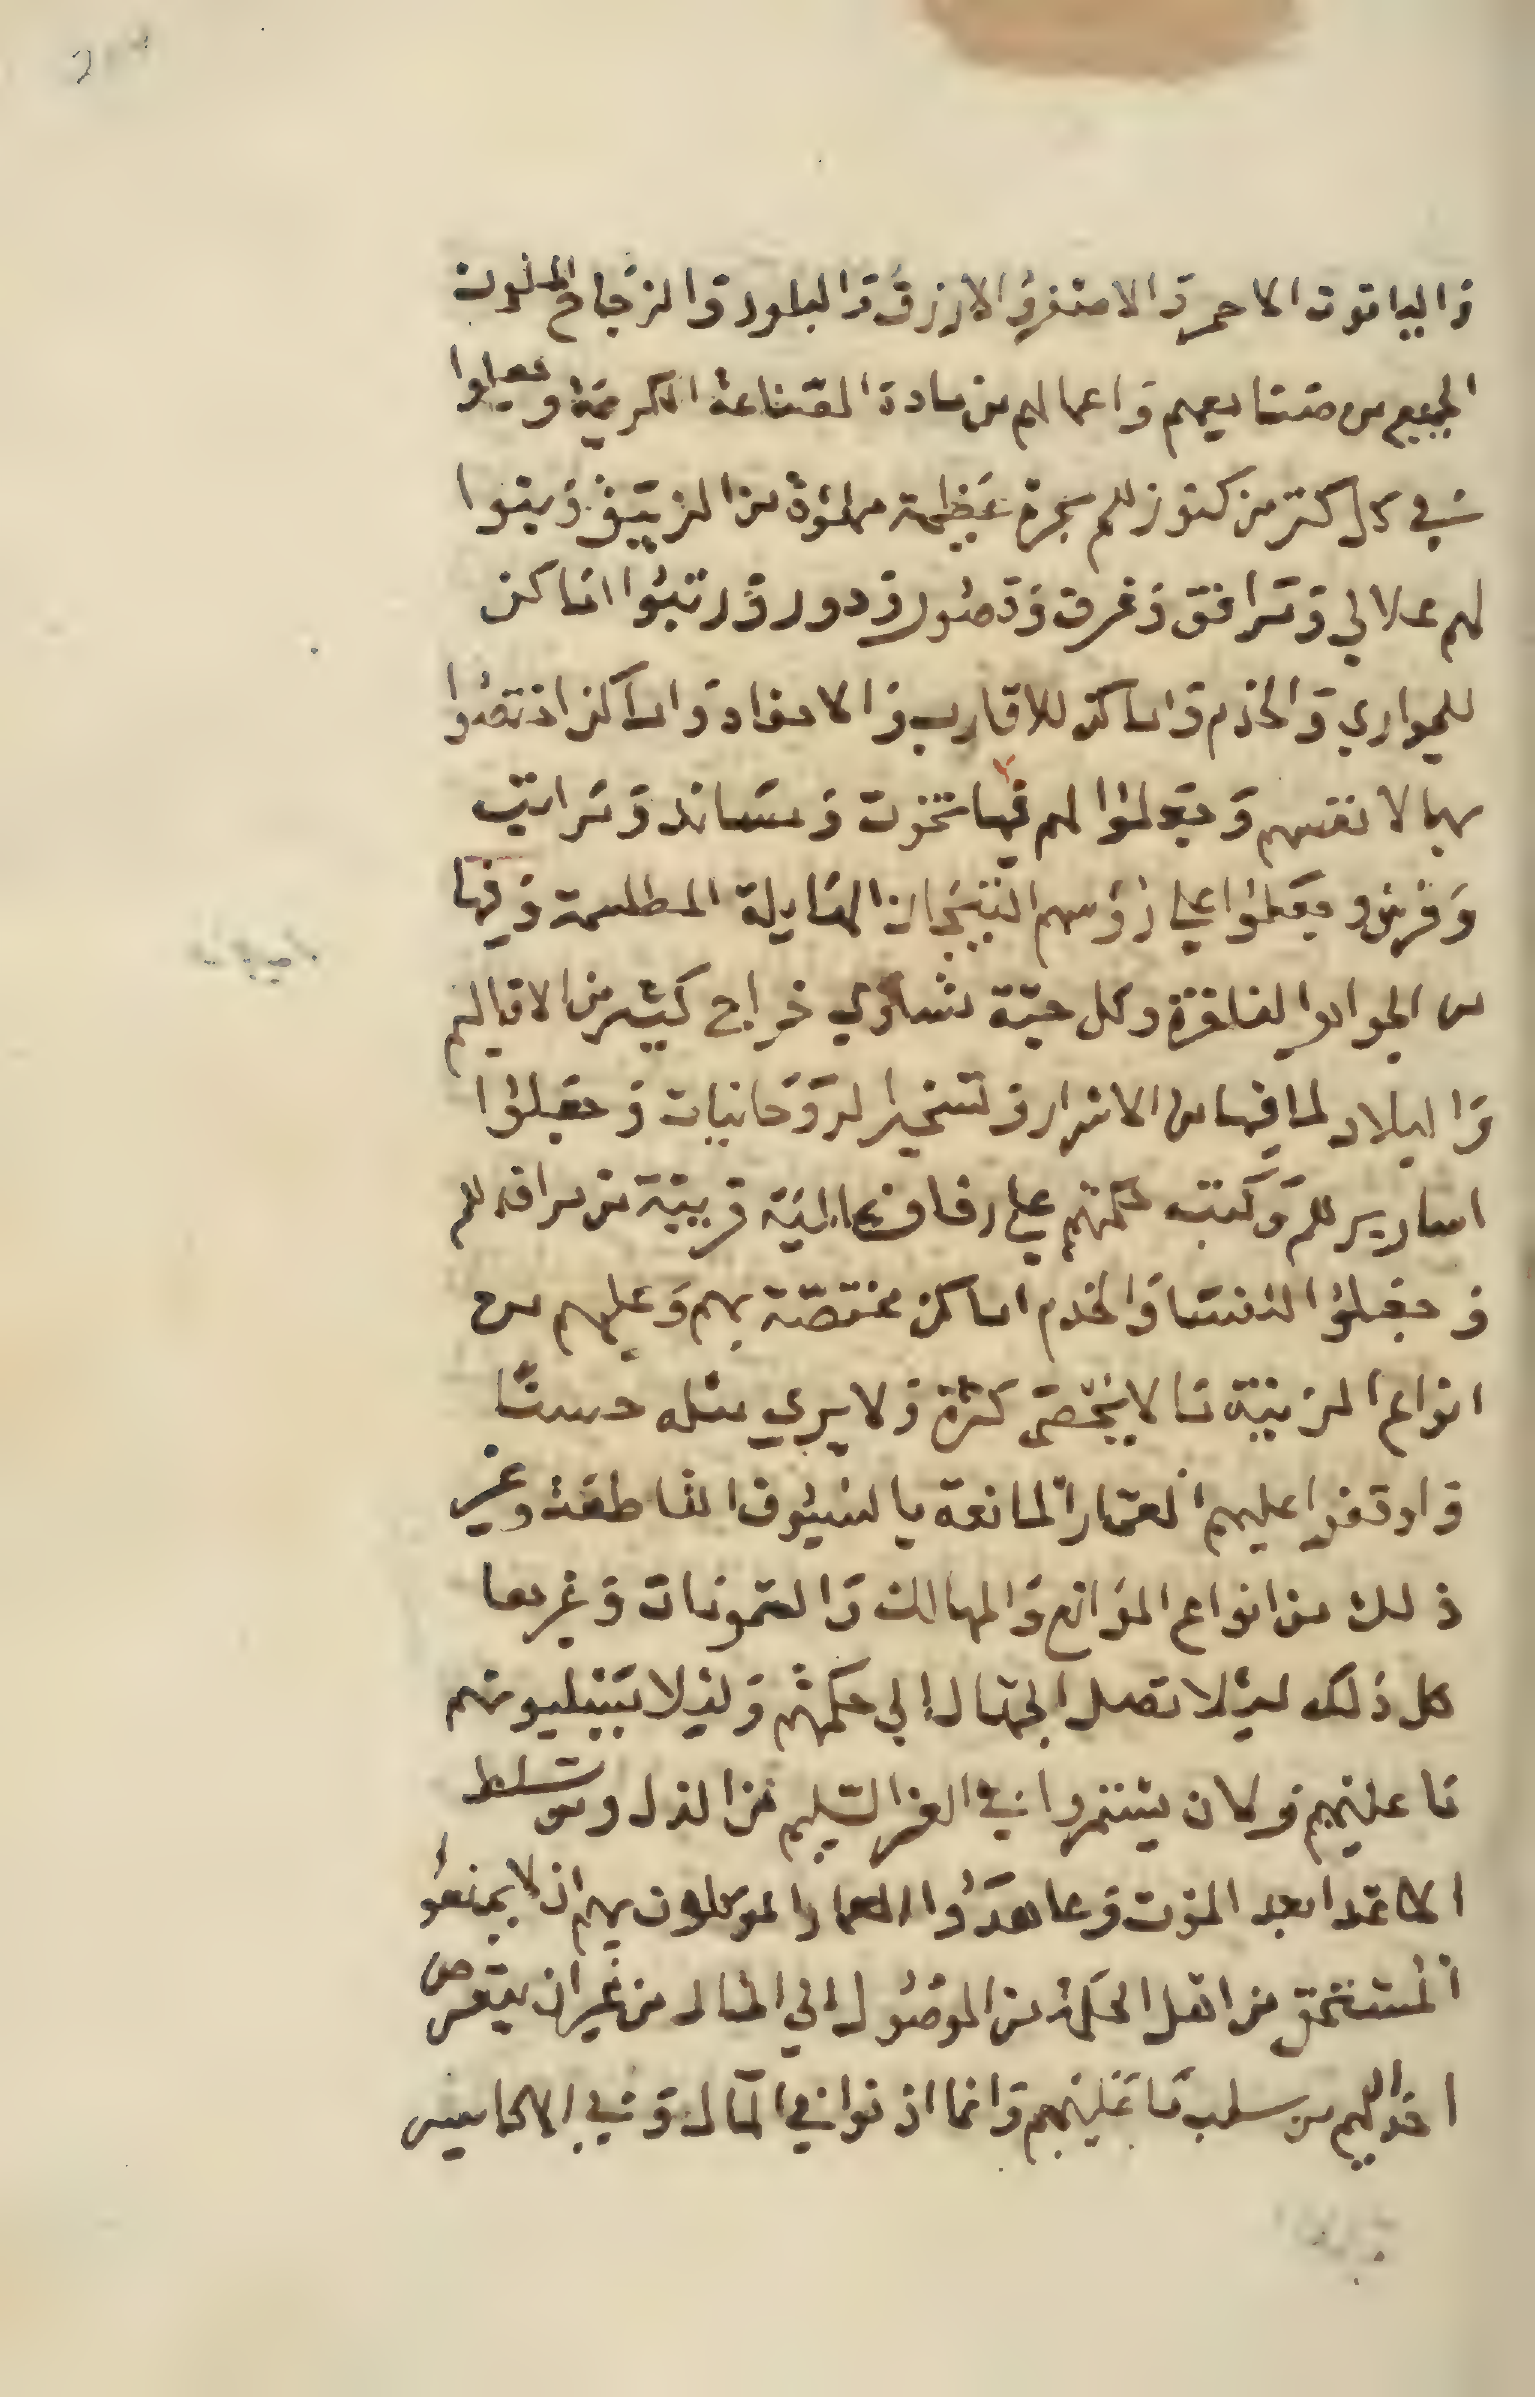 والياقوت الاحمر والاصفر والازرق والبلور والزجاج الملون
الجميع من صنايعهم واعمالهم من مادة الصناعة الكريمة وجعلوا
في كل كنز من كنوزهم بحرة عظيمة مملوة من الزيبق وبنوا
لهم علالي ومرافق وغرف وقصور ودور ورتبوا اماكن
للجواري والخدم واماكن للاقارب والاحفاد واماكن اختصوا
بها لانفسهم وجعلوا لهم فيها تخوت ومساند ومراتب
وفرش وجعلوا علي رؤسهم التيجان الهايلة المطلسمة وفيها
من الجواهر الفاخرة وكل حبة تساوي خراج كثير من الاقاليم
والبلاد لما فيها من الاسرار وتسخير الروحانيات وجعلوا
اسارير لهم وكتب حكمتهم علي رفاف عالية قريبة من مراقدهم
وجعلوا للنسا والخدم اماكن مختصة بهم وعليهم من
انواع الزينة ما لا يحصى كثرة ولا يري مثله حسنا
واوقفوا عليهم العمار المانعة بالسيوف القاطعة وغير
ذلك من انواع الموانع والمهالك والعمونات وغيرها
كل ذلك ليلا تصل الجهال الي حكمتهم وليلا يسلبونهم
ما عليهم وكان يستمروا في العز السليم من الذل وتسلط
الاعدا بعد الموت وعاهدوا العمار الموكلون بهم ان لا يمنعوا
المستحق من اهل الحكمة من الوصول الي المال من غير ان يتعرض
احد اليهم من سلب ما عليهم وانما اذنوا في المال وفي الاكاسير